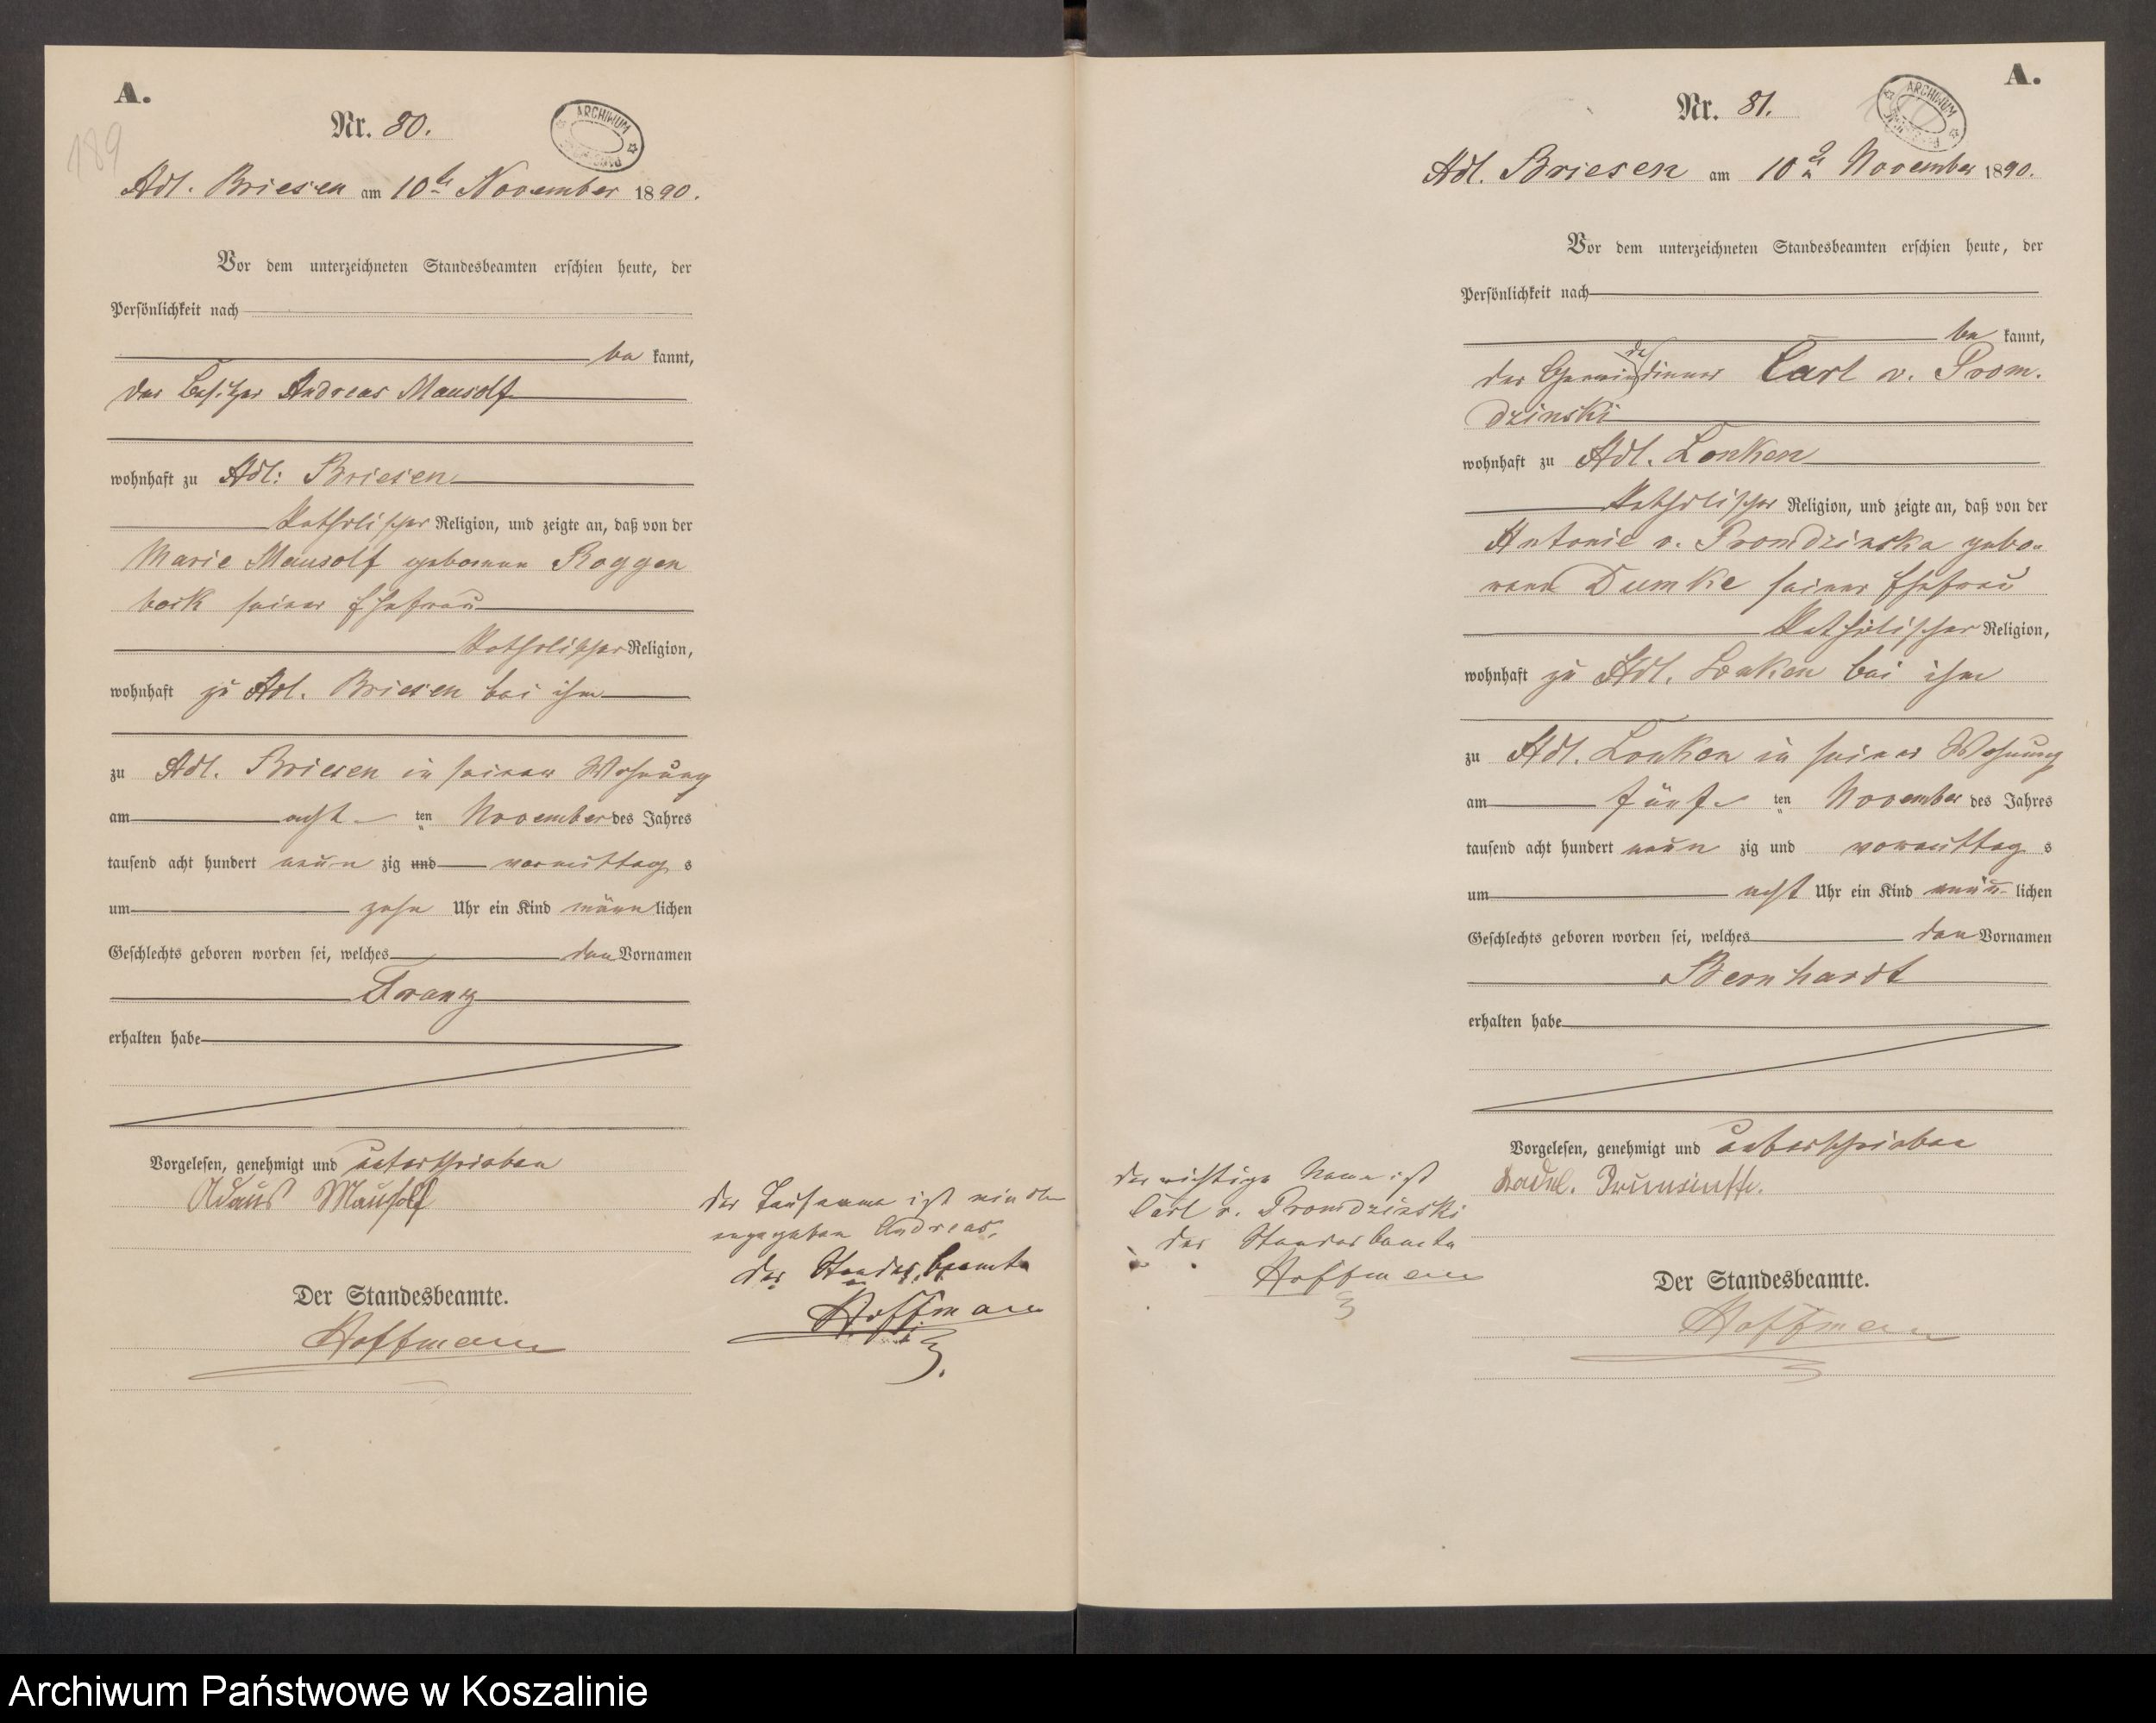 A.
189
Nr. 80.
ARCHIWUM
Adl. Briesen am 10ten November 1890.
Vor dem unterzeichneten Standesbeamten erschien heute, der
Persönlichkeit nach
be kannt,
der Besitzer Andreas Mausolf
wohnhaft zu Adl. Briesen
katholischer Religion, und zeigte an, daß von der
Marie Mausolf geborenen Roggen
bork seiner Ehefrau
katholischer Religion,
wohnhaft zu Adl. Briesen bei ihm
zu Adl. Briesen in seiner Wohnung
am acht ten November des Jahres
tausend acht hundert neun zig und vormittag s
um zehn Uhr ein Kind männ lichen
Geschlechts geboren worden sei, welches den Vornamen
Franz
erhalten habe
Vorgelesen, genehmigt und unterschrieben
Mausolf
Der Standesbeamte.
Hoffmann
Der Taufname ist wie oben
angegeben Andreas.
Der Standesbeamte
Hoffmann
A.
Nr. 81.
ARCHIWUM
Adl. Briesen am 10ten November 1890.
Vor dem unterzeichneten Standesbeamten erschien heute, der
Persönlichkeit nach
be kannt,
der Gemeindediener Carl v. Prom.
dzinski
wohnhaft zu Adl. Lonken
katholischer Religion, und zeigte an, daß von der
Antonie v. Promdzinska gebo-
renen Dumke seiner Ehefrau
katholischer Religion,
wohnhaft zu Adl. Lonken bei ihm
zu Adl. Lonken in seiner Wohnung
am fünf ten November des Jahres
tausend acht hundert neun zig und vormittag s
um acht Uhr ein Kind männ lichen
Geschlechts geboren worden sei, welches den Vornamen
Bernhardt
erhalten habe
Vorgelesen, genehmigt und unterschrieben
Der Standesbeamte.
Hoffmann
Der richtige Name ist
Carl v. Promdzinski
Der Standesbeamte
Hoffmann
Archiwum Państwowe w Koszalinie